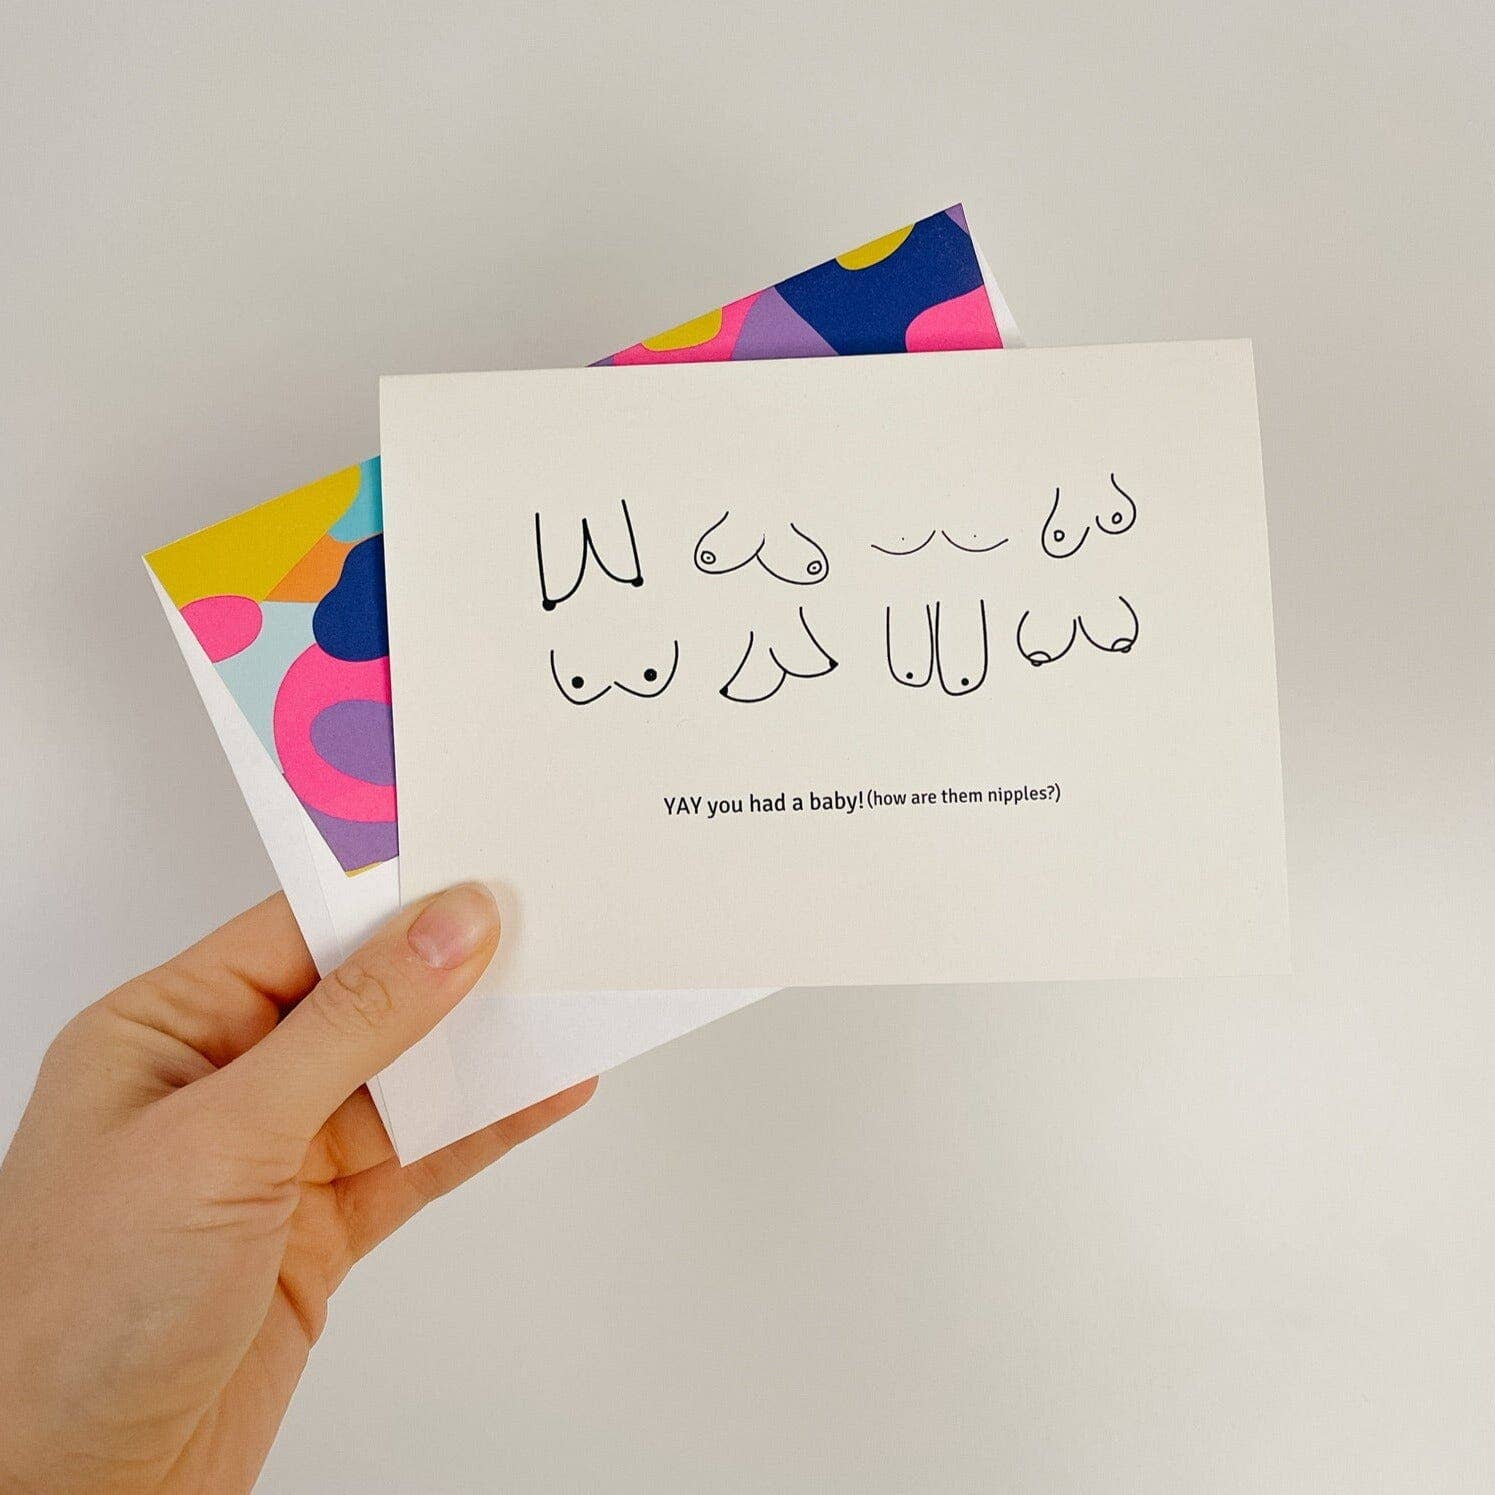 YAY you had a baby! (how are them nipples?)